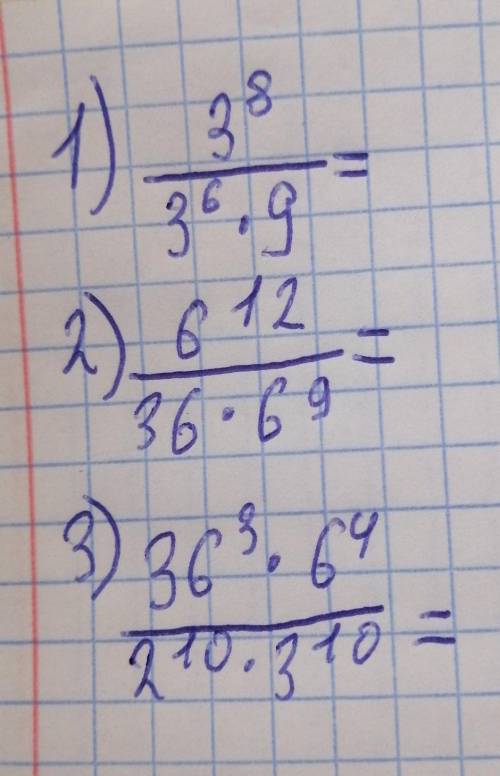 1) 3⁸
3⁶ · 9 =
2) 6¹²
36 · 6⁹ =
3) 36³ · 6⁴
2¹⁰ · 3¹⁰ =